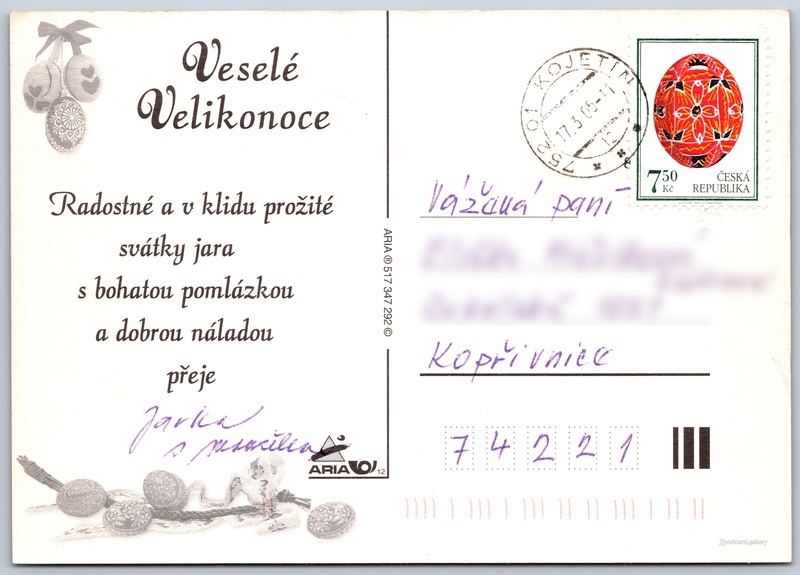 Veselé
Velikonoce
Radostné a v klidu prožité
svátky jara
s bohatou pomlázkou
a dobrou náladou
přeje
Jarka
s
ARIA 12
ARIA ® 517 347 292 ©
752 01 KOJETÍN 1
17.3.05-11
750
Kč
ČESKÁ
REPUBLIKA
Vážená paní
Kopřivnice
74221